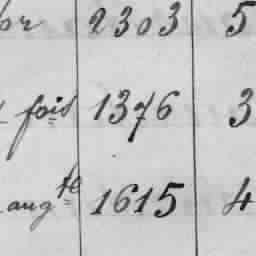 or 2303 5
fois 1376 3
augte 1615 4